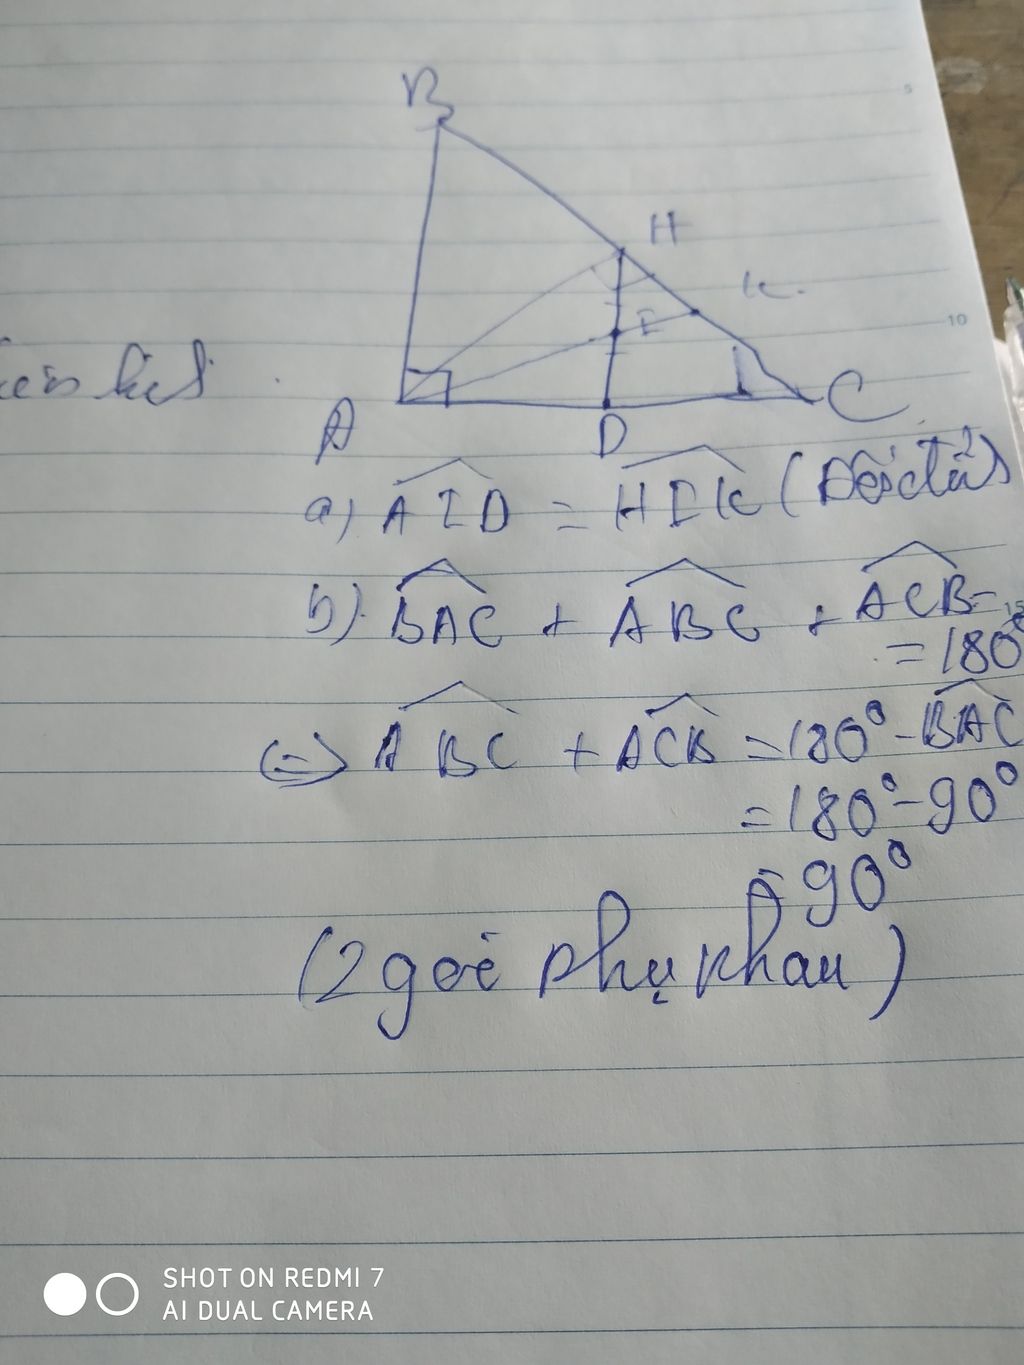 B
H
K.
I
A
D
C
5
10
a) AID = HIK (Đối đỉnh)
b) BAC + ABC + ACB =
= 180°
15
<=> ABC + ACB = 180° - BAC
= 180° - 90°
= 90°
(2 góc phụ nhau)
SHOT ON REDMI 7
AI DUAL CAMERA